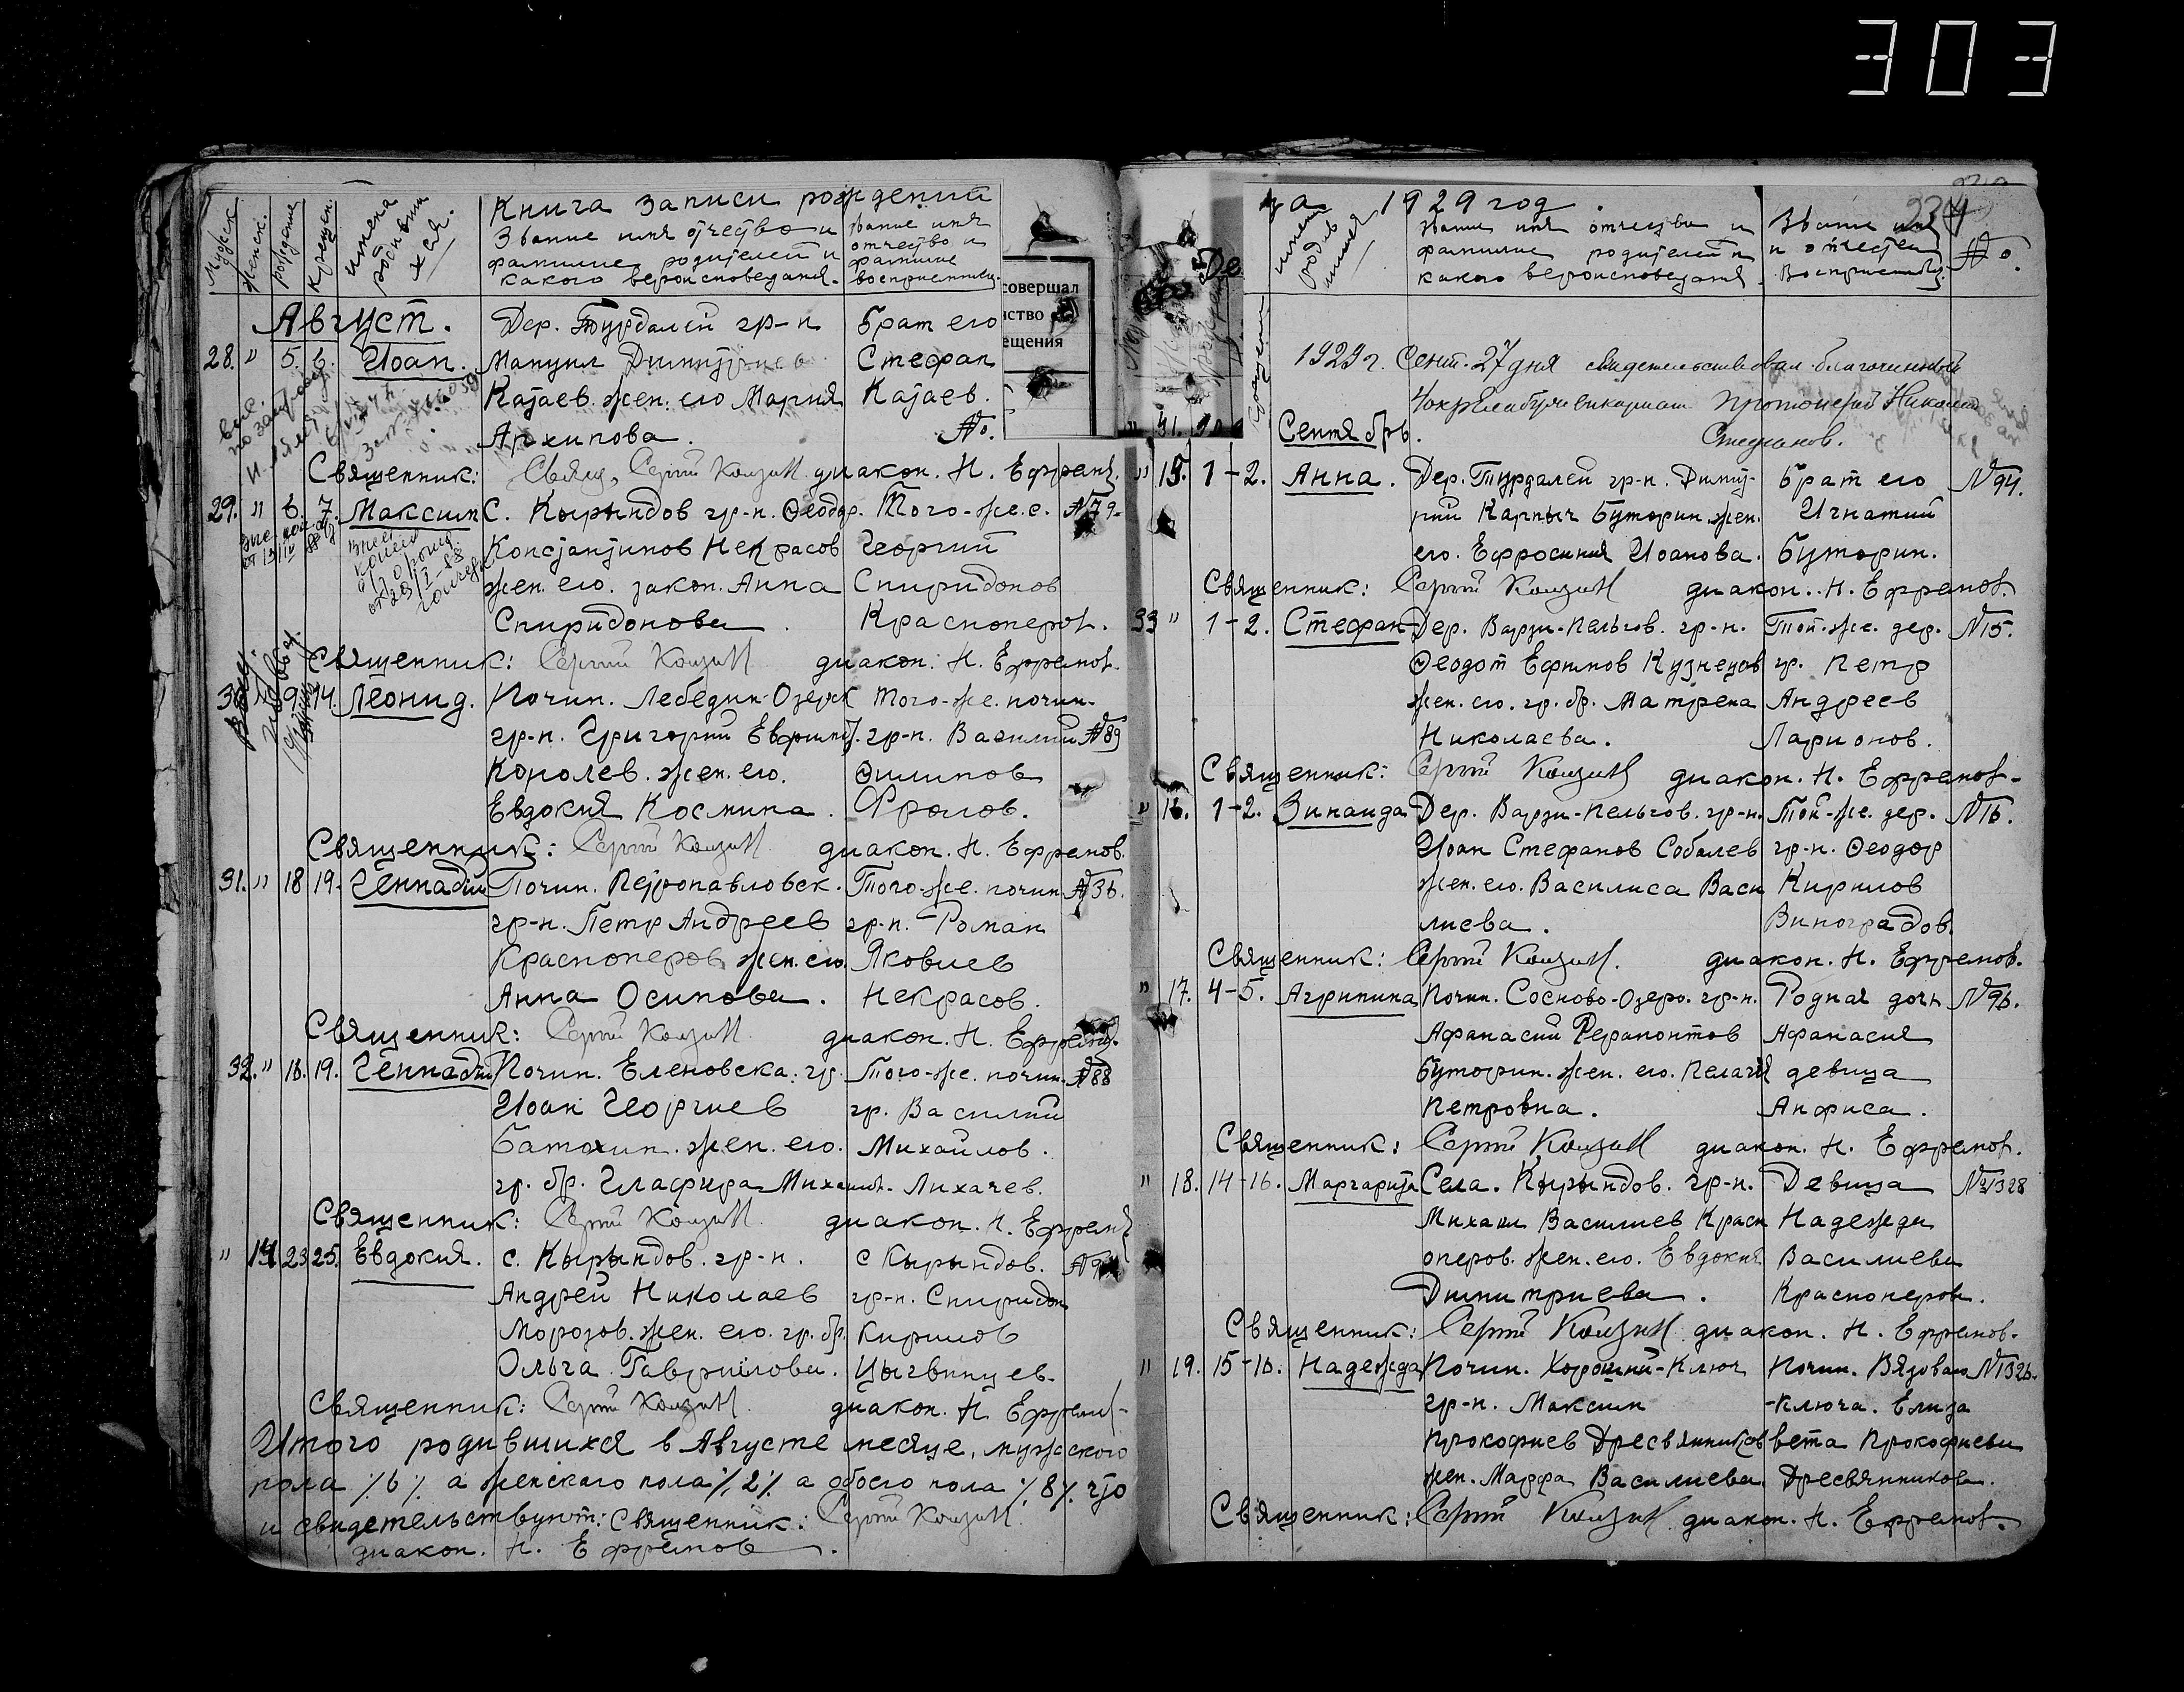 303
Мужск
женск.
рождение
Крещен.
имена
родивши
хся.
Книга записи рождений
Звание имя отчество и
фамилие родителей и
какого вероисповедания.
звание имя
отчество и
фамилие
восприемник.
совершал
ещения
Август.
Дер. Турдалей гр-н
брат его
28. " 5. 6. Иоан. Мануил Димитриев Стефан
Катаев. жен. его Мария Катаев.
Архипова. №.
Священник: Свящ. Сергий диакон. Н. Ефрем.
29. " 6. 7. Максим С. Кырындов гр-н. Ѳеодор. Того-же. с. №79.
Константинов Некрасов Георгий
жен. его. закон. Анна Спиридонов
Спиридонова. Красноперов.
Священник: Сергий диакон. Н. Ефремов.
30. " 9. 14. Леонид. Почин. Лебедин-Озерск Того-же. почин-
гр-н. Григорий Ефимов. гр-н. Василий №89
Королев. жен. его. Филипов
Евдокия Космина. Фролов.
Священник: Сергий диакон. Н. Ефремов.
31. " 18 19. Геннадий Почин. Петропавловск. Того-же. почин. №36.
гр-н. Петр Андреев гр-н. Роман
Красноперов. жен. его. Яковлев
Анна Осипова. Некрасов.
Священник: Сергий диакон. Н. Ефрем.
32. " 18. 19. Геннадий Почин. Еленовска. гр. Того-же. почин. №88
Иоан Георгиев гр. Василий
Батохин. жен. его. Михайлов.
гр. бр. Глафира Михаил. Лихачев.
Священник: Сергий диакон. Н. Ефрем
" 14 23 25. Евдокия. с. Кырындов. гр-н. с Кырындов.
Андрей Николаев гр-н. Спиридон
Морозов. жен. его. гр. бр. Кирилов
Ольга Гаврилова. Цыгвинцев.
Священник: Сергий диакон. Н Ефрем
Итого родившихся в Августе месяце, мужского
пола %6% а женскаго пола %2% а обоего пола %8% что
и свидетельствуют: Священник: Сергий
диакон. Н. Ефремов.
за 1929 год.
имена
родив
шихся
Звание имя отчества и
фамилие родителей и
какого вероисповедания
Звание имя
и отчество
Восприемник.
№.
234
1929 г. Сент. 27 дня свидетельствовал благочинный
Протоиерей Николай
Стефанов.
Сентябрь.
" 15. 1-2. Анна. Дер. Турдалей гр-н. Димит- брат его №94.
рий Карпыч Буторин жен. Игнатий
его. Ефросиния Иоанова. Буторин.
Священник: Сергий диакон. Н. Ефремов.
33 " 1-2. Стефан Дер. Варзи-Пельгов. гр-н. Той-же. дер. №15.
Ѳеодот Ефимов Кузнецов гр. Петр
жен. его. гр. бр. Матрена Андреев
Николаева. Ларионов.
Священник: Сергий диакон. Н. Ефремов.
" 16. 1-2. Зинаида Дер. Варзи-Пельгов. гр-н. Той-же. дер. №16.
Иоан Стефанов Соболев гр-н. Ѳеодор
жен. его. Василиса Васи Кирилов
лиева. Виноградов.
Священник: Сергий диакон. Н. Ефремов.
" 17. 4-5. Агрипина Почин. Сосново-Озеро. гр-н. Родная дочь №96.
Афанасий Ферапонтов Афанасия
Буторин. жен. его. Пелагия девица
Петровна. Анфиса.
Священник: Сергий диакон. Н. Ефремов.
" 18. 14-16. Маргарита Села. Кырындов. гр-н. Девица №1328
Михаил Василиев Красн Надежда
оперов. жен. его. Евдокия Василиева
Димитриева. Красноперов.
Священник: Сергий диакон. Н. Ефремов.
" 19. 15-16. Надежда Почин. Хороший-Ключ Почин. Вязоваго №1326.
гр-н. Максим -ключа. Елиза
Прокофиев Дресвянников вета Прокофиева
жен. Марфа Василиева Дресвянникова.
Священник: Сергий диакон. Н. Ефремов.